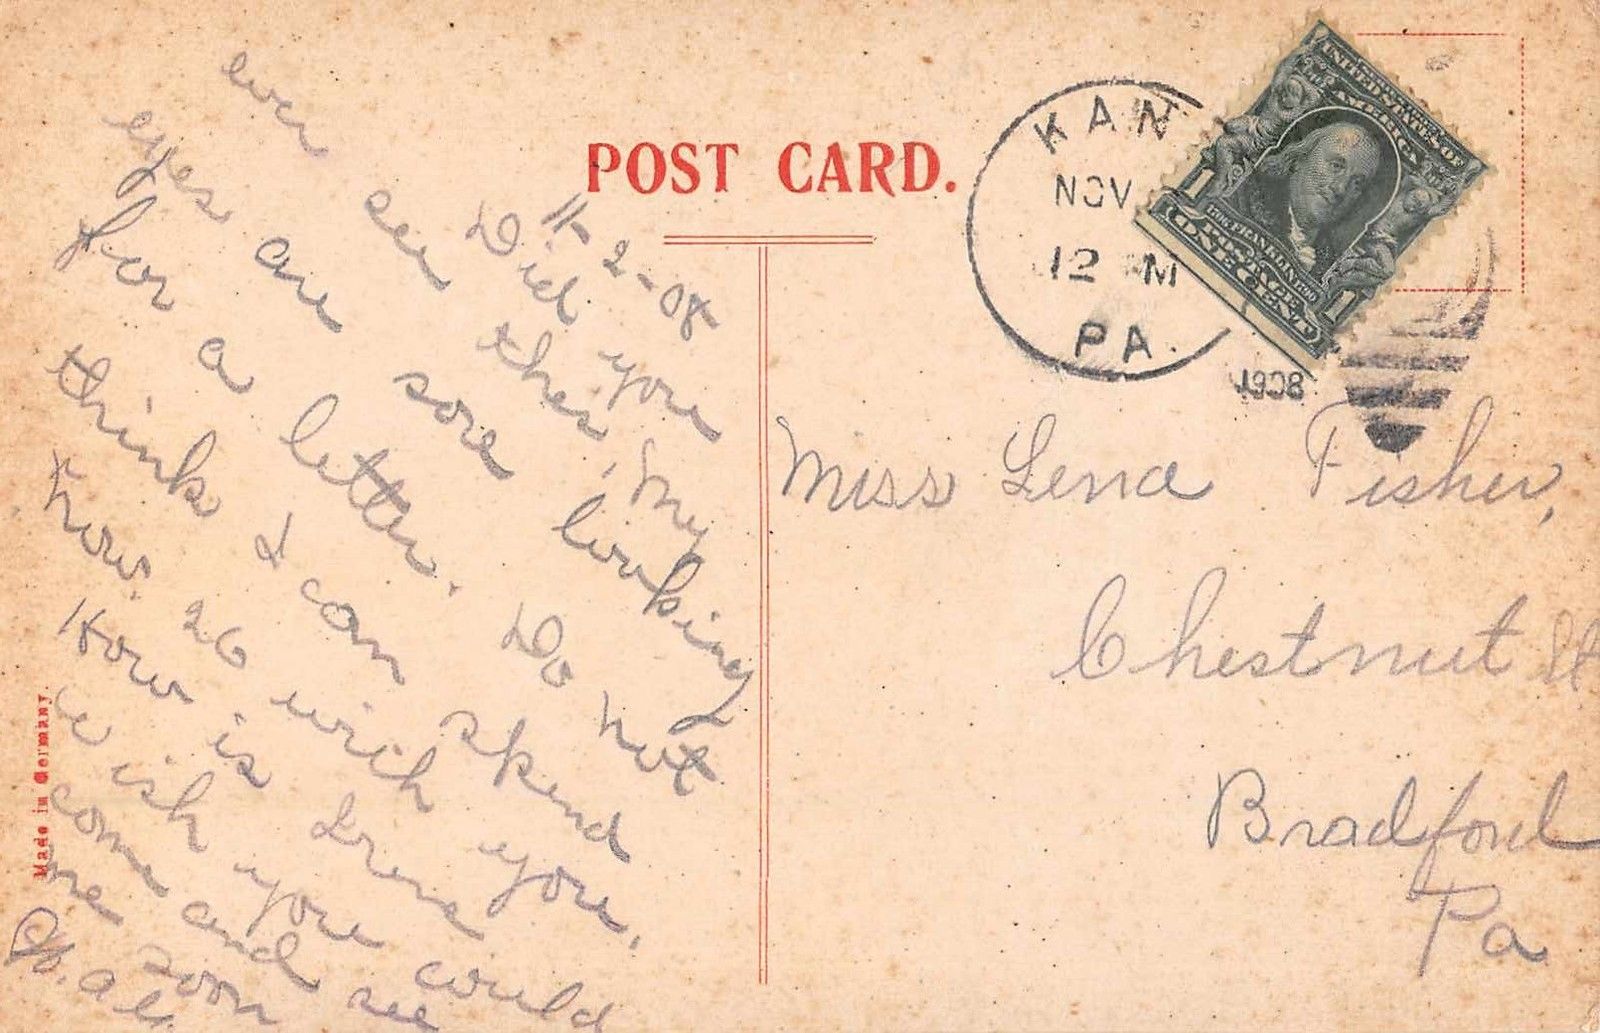 POST CARD.
11-2-08
Did you
ever see this, My
eyes are sore looking
for a letter. Do not
think I can spend
Nov. 26 with you.
How is Irene
wish you could
come and see
me soon
KAN
NOV
12 M
PA.
1908
UNITED STATES OF
AMERICA
FRANKLIN
POSTAGE
1 ONE CENT 1
Miss Lena Fisher,
Chestnut St
Bradford
Pa
Made in Germany.